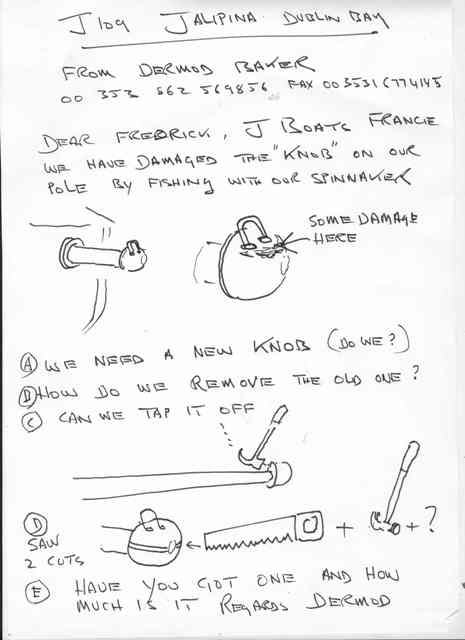 J109 JALIPINA DUBLIN BAY
FROM DERMOD BAKER
00 353 862 569856 FAX 00 3531 6774145
DEAR FREDRICK, J BOATS FRANCIE
WE HAVE DAMAGED THE "KNOB" ON OUR
POLE BY FISHING WITH OUR SPINNAKER
SOME DAMAGE
HERE
A WE NEED A NEW KNOB (DO WE?)
B HOW DO WE REMOVE THE OLD ONE?
C CAN WE TAP IT OFF
D
SAW
2 CUTS
+ + ?
E HAVE YOU GOT ONE AND HOW
MUCH IS IT REGARDS DERMOD